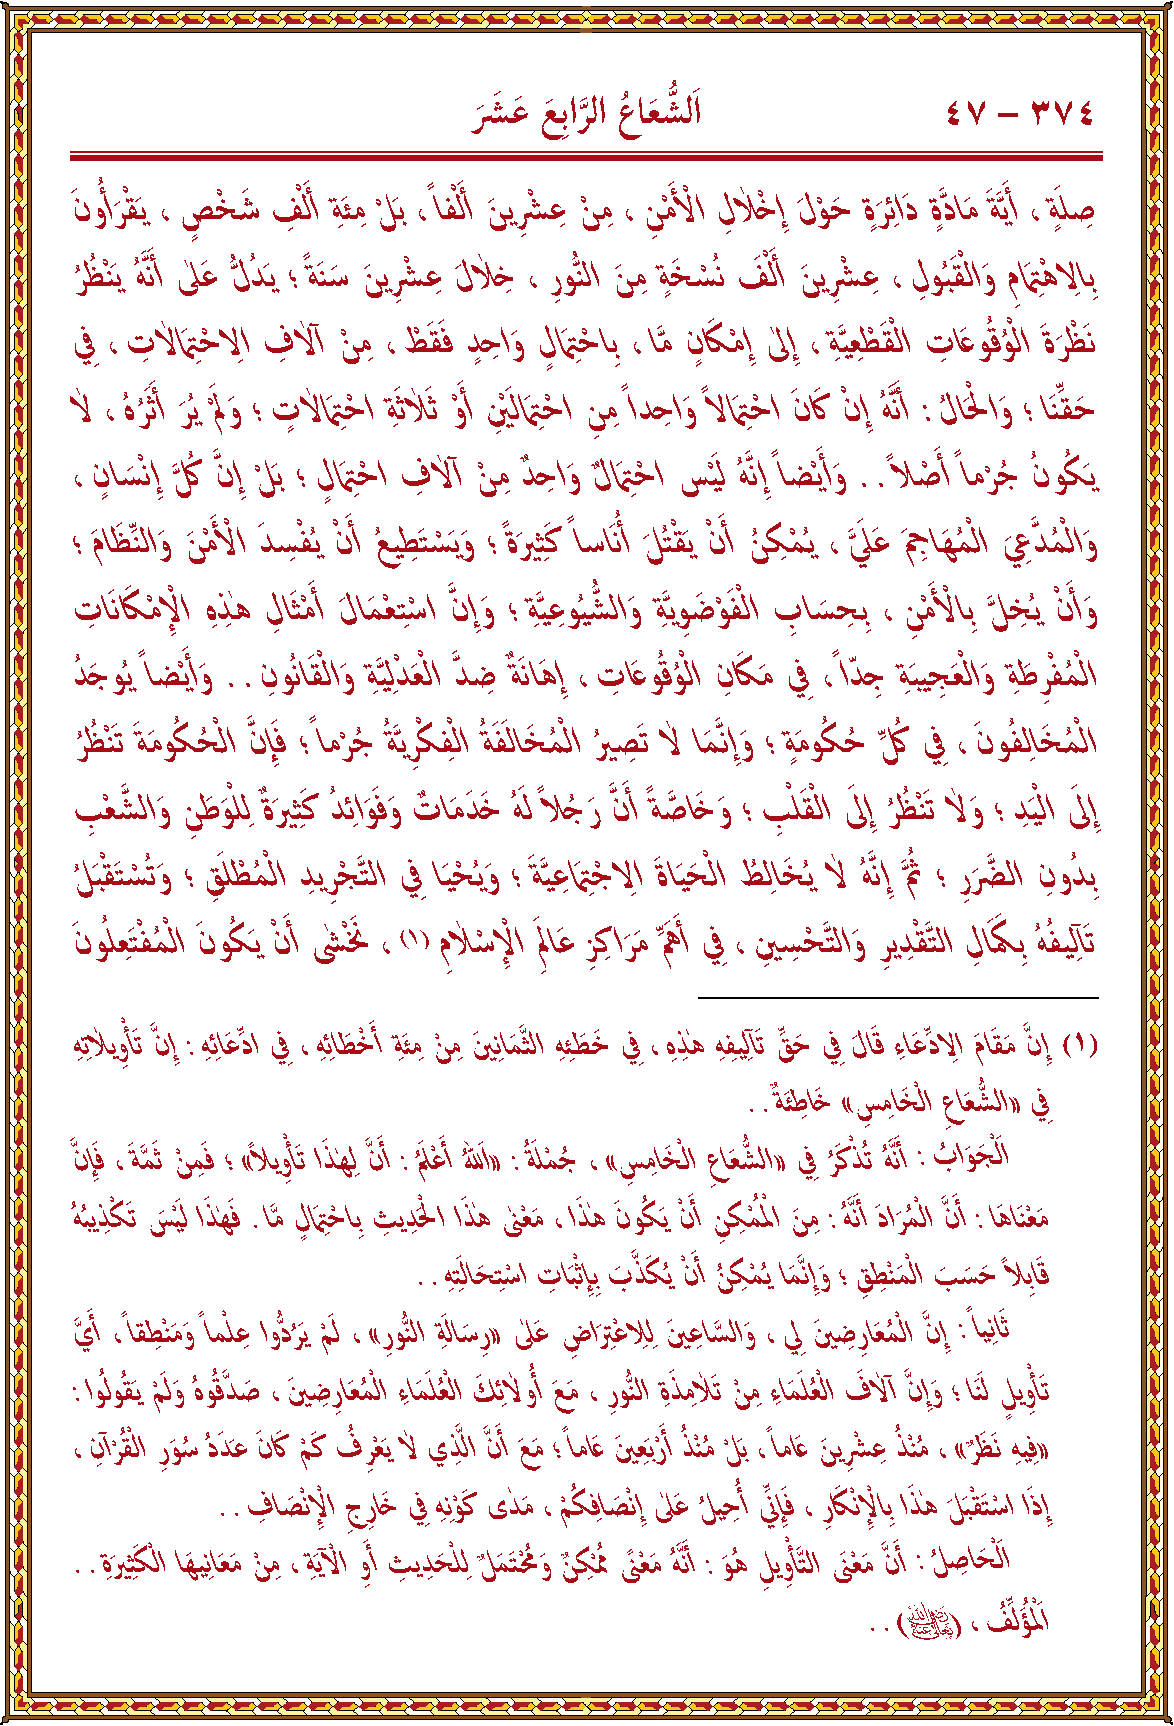 ٣٧٤ – ٤٧ اَلشُّعَاعُ الرَّابِعَ عَشَرَ
صِلَةٍ ، أَيَّةَ مَادَّةٍ دَائِرَةٍ حَوْلَ إِخْلاٰلِ الْأَمْنِ ، مِنْ عِشْرِينَ أَلْفاً ، بَلْ مِئَةِ أَلْفِ شَخْصٍ ، يَقْرَأُونَ
بِالاِهْتِمَامِ وَالْقَبُولِ ، عِشْرِينَ أَلْفَ نُسْخَةٍ مِنَ النُّورِ ، خِلاٰلَ عِشْرِينَ سَنَةً ؛ يَدُلُّ عَلٰى أَنَّهُ يَنْظُرُ
نَظْرَةَ الْوُقُوعَاتِ الْقَطْعِيَّةِ ، إِلىٰ إِمْكَانٍ مَّا ، بِاحْتِمَالٍ وَاحِدٍ فَقَطْ ، مِنْ آلاٰفِ الاِحْتِمَالاٰتِ ، فِي
حَقِّنَا ؛ وَالْحَالُ : أَنَّهُ إِنْ كَانَ احْتِمَالاً وَاحِداً مِنِ احْتِمَالَيْنِ أَوْ ثَلاٰثَةِ احْتِمَالاٰتٍ ؛ وَلَمْ يُرَ أَثَرُهُ ، لاٰ
يَكُونُ جُرْماً أَصْلاً . . وَأَيْضاً إِنَّهُ لَيْسَ احْتِمَالٌ وَاحِدٌ مِنْ آلاٰفِ احْتِمَالٍ ؛ بَلْ إِنَّ كُلَّ إِنْسَانٍ ،
وَالْمُدَّعِيَ الْمُهَاجِمَ عَلَيَّ ، يُمْكِنُ أَنْ يَقْتُلَ أُنَاساً كَثِيرَةً ؛ وَيَسْتَطِيعُ أَنْ يُفْسِدَ الْأَمْنَ وَالنِّظَامَ ؛
وَأَنْ يُخِلَّ بِالْأَمْنِ ، بِحِسَابِ الْفَوْضَوِيَّةِ وَالشُّيُوعِيَّةِ ؛ وَإِنَّ اسْتِعْمَالَ أَمْثَالِ هٰذِهِ الْإِمْكَانَاتِ
الْمُفْرِطَةِ وَالْعَجِيبَةِ جِدّاً ، فِي مَكَانِ الْوُقُوعَاتِ ، إِهَانَةٌ ضِدَّ الْعَدْلِيَّةِ وَالْقَانُونِ . . وَأَيْضاً يُوجَدُ
الْمُخَالِفُونَ ، فِي كُلِّ حُكُومَةٍ ؛ وَإِنَّمَا لاٰ تَصِيرُ الْمُخَالَفَةُ الْفِكْرِيَّةُ جُرْماً ؛ فَإِنَّ الْحُكُومَةَ تَنْظُرُ
إِلَى الْيَدِ ؛ وَلاٰ تَنْظُرُ إِلَى الْقَلْبِ ؛ وَخَاصَّةً أَنَّ رَجُلاً لَهُ خَدَمَاتٌ وَفَوَائِدُ كَثِيرَةٌ لِلْوَطَنِ وَالشَّعْبِ
بِدُونِ الضَّرَرِ ؛ ثُمَّ إِنَّهُ لاٰ يُخَالِطُ الْحَيَاةَ الاِجْتِمَاعِيَّةَ ؛ وَيُحْيَا فِي التَّجْرِيدِ الْمُطْلَقِ ؛ وَتُسْتَقْبَلُ
تَآلِيفُهُ بِكَمَالِ التَّقْدِيرِ وَالتَّحْسِينِ ، فِي أَهَمِّ مَرَاكِزِ عَالَمِ الْإِسْلاٰمِ (١) ، نَخْشٰى أَنْ يَكُونَ الْمُفْتَعِلُونَ
(١) إِنَّ مَقَامَ الاِدِّعَاءِ قَالَ فِي حَقِّ تَآلِيفِهِ هٰذِهِ ، فِي خَطَئِهِ الثَّمَانِينَ مِنْ مِئَةِ أَخْطَائِهِ ، فِي ادِّعَائِهِ : إِنَّ تَأْوِيلاٰتِهِ
فِي «الشُّعَاعِ الْخَامِسِ» خَاطِئَةٌ . .
اَلْجَوَابُ : أَنَّهُ تُذْكَرُ فِي «الشُّعَاعِ الْخَامِسِ» ، جُمْلَةُ : «اَللهُ أَعْلَمُ : أَنَّ لِهٰذَا تَأْوِيلاً» ؛ فَمِنْ ثَمَّةَ ، فَإِنَّ
مَعْنَاهَا : أَنَّ الْمُرَادَ أَنَّهُ : مِنَ الْمُمْكِنِ أَنْ يَكُونَ هذَا ، مَعْنٰى هٰذَا الْحَدِيثِ بِاحْتِمَالٍ مَّا . فَهٰذَا لَيْسَ تَكْذِيبُهُ
قَابِلاً حَسَبَ الْمَنْطِقِ ؛ وَإِنَّمَا يُمْكِنُ أَنْ يُكَذَّبَ بِإِثْبَاتِ اسْتِحَالَتِهِ . .
ثَانِياً : إِنَّ الْمُعَارِضِينَ لِي ، وَالسَّاعِينَ لِلاِعْتِرَاضِ عَلىٰ «رِسَالَةِ النُّورِ» ، لَمْ يَرُدُّوا عِلْماً وَمَنْطِقاً ، أَيَّ
تَأْوِيلٍ لَنَا ؛ وَإِنَّ آلاٰفَ الْعُلَمَاءِ مِنْ تَلاٰمِذَةِ النُّورِ ، مَعَ أُولاٰئِكَ الْعُلَمَاءِ الْمُعَارِضِينَ ، صَدَّقُوهُ وَلَمْ يَقُولُوا :
«فِيهِ نَظَرٌ» ، مُنْذُ عِشْرِينَ عَاماً ، بَلْ مُنْذُ أَرْبَعِينَ عَاماً ؛ مَعَ أَنَّ الَّذِي لاٰ يَعْرِفُ كَمْ كَانَ عَدَدُ سُوَرِ الْقُرْآنِ ،
إِذَا اسْتَقْبَلَ هٰذَا بِالْإِنْكَارِ ، فَإِنِّي أُحِيلُ عَلىٰ إِنْصَافِكُمْ ، مَدٰى كَوْنِهِ فِي خَارِجِ الْإِنْصَافِ . .
اَلْحَاصِلُ : أَنَّ مَعْنَى التَّأْوِيلِ هُوَ : أَنَّهُ مَعْنًى مُمْكِنٌ وَمُحْتَمَلٌ لِلْحَدِيثِ أَوِ الْآيَةِ ، مِنْ مَعَانِيهَا الْكَثِيرَةِ . .
اَلْمُؤَلِّفُ ، (رَضِيَ اللهُ تَعَالٰى عَنْهُ) . .